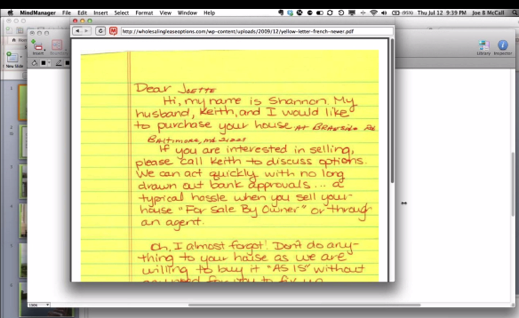 MindManager File Edit Insert Select Format View Window Help
Thu Jul 12 9:39 PM Joe B McCall
http://wholesalingleaseoptions.com/wp-content/uploads/2009/12/yellow-letter-french-newer.pdf
Library Inspector
New Slide
Dear Joette
Hi, my name is Shannon. My
husband, Keith, and I would like
to purchase your house at
Baltimore, md
If you are interested in selling,
please call Keith to discuss options.
We can act quickly with no long
drawn out bank approvals... a
typical hassle when you sell your
house "For Sale By Owner" or through
an agent.
Oh, I almost forgot! Don't do any-
thing to your house as we are
willing to buy it "AS IS" without